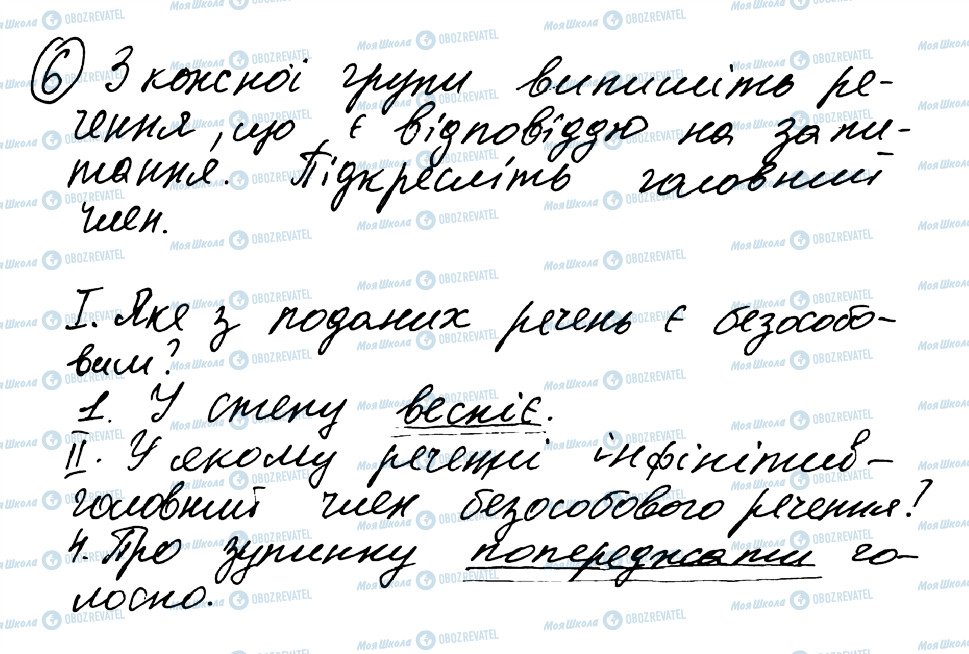 6 З кожної групи випишіть ре-
чення, що є відповіддю на запи-
тання. Підкресліть головний
член.
I. Яке з поданих речень є безособо-
вим?
1. У степу весніє.
II. У якому реченні інфінітив-
головний член безособового речення?
4. Про зупинку попереджати го-
лосно.